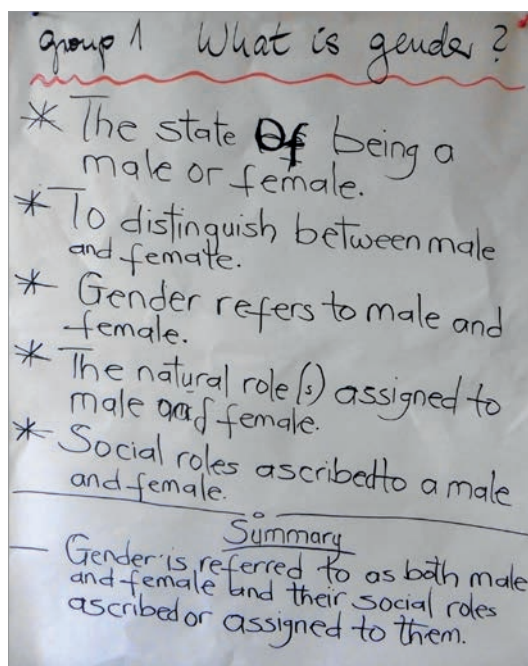 group 1 What is gender?
* The state Of being a
male or female.
* To distinguish between male
and female.
* Gender refers to male and
female.
* The natural role(s) assigned to
male and female.
* Social roles ascribed to a male
and female.
Summary
— Gender is referred to as both male
and female and their social roles
ascribed or assigned to them.